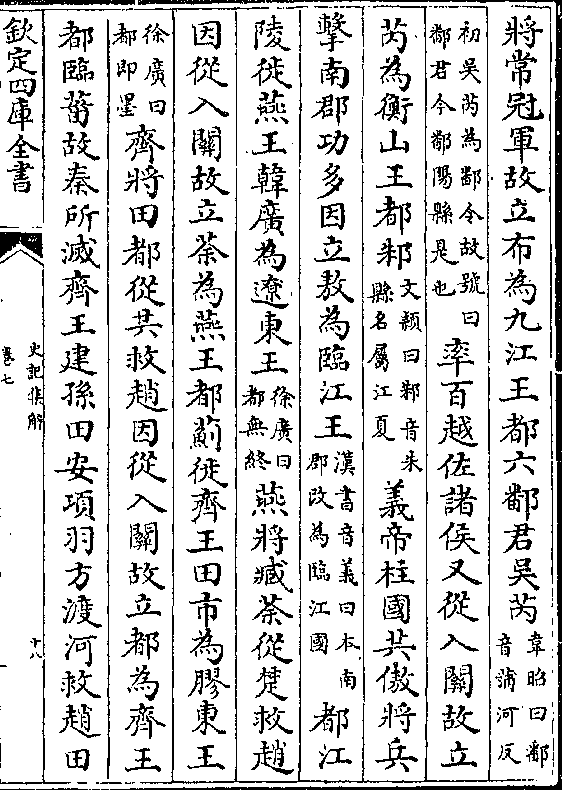 將常冠軍故立布為九江王都六鄱君吳芮韋昭曰鄱音蒲河反
初吳芮為鄱令故號曰鄱君今鄱陽縣是也率百越佐諸侯又從入關故立
芮為衡山王都邾文穎曰邾音朱縣名屬江夏義帝柱國共傲將兵
擊南郡功多因立敖為臨江王漢書音義曰本南郡改為臨江國都江
陵徙燕王韓廣為遼東王徐廣曰都無終燕將臧荼從楚救趙
因從入關故立荼為燕王都薊徙齊王田市為膠東王
徐廣曰都即墨齊將田都從共救趙因從入關故立都為齊王
都臨菑故秦所滅齊王建孫田安項羽方渡河救趙田
欽定四庫全書
史記集解
卷七
十八